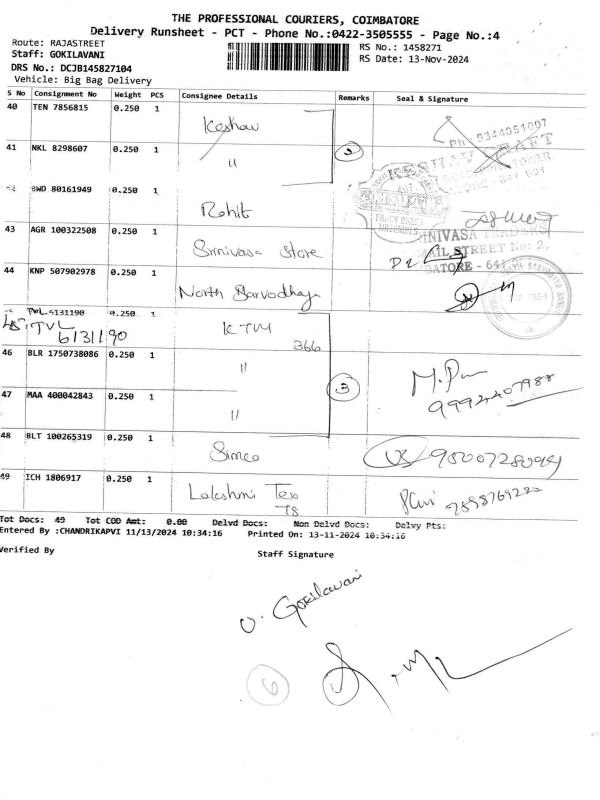 THE PROFESSIONAL COURIERS, COIMBATORE
Delivery Runsheet - PCT - Phone No.:0422-3505555 - Page No.:4
Route: RAJASTREET
Staff: GOKILAVANI
DRS No.: DCJB145827104
Vehicle: Big Bag Delivery
RS No.: 1458271
RS Date: 13-Nov-2024
S No Consignment No Weight PCS Consignee Details Remarks Seal & Signature
40 TEN 7856815 0.250 1 Keshav
Ph: 9344051097
41 NKL 8298607 0.250 1 "
KESHAV
BWD 80161949 0.250 1 Rohit
43 AGR 100322508 0.250 1 Srinivasa Store
SRINIVASA TRADERS
STREET No: 2,
44 KNP 507902978 0.250 1 North Sarvodhaya
TVL 6131190 0.250 1 KTM
TVL
6131190
366
46 BLR 1750738086 0.250 1 "
3
47 MAA 400042843 0.250 1 "
48 BLT 100265319 0.250 1 Simco
49 ICH 1806917 0.250 1 Lakshmi Tex
78
Tot Docs: 49 Tot COD Amt: 0.00 Delvd Docs: Non Delvd Docs: Delvy Pts:
Entered By :CHANDRIKAPVI 11/13/2024 10:34:16 Printed On: 13-11-2024 10:34:16
Verified By
Staff Signature
V. Gokilavani
6